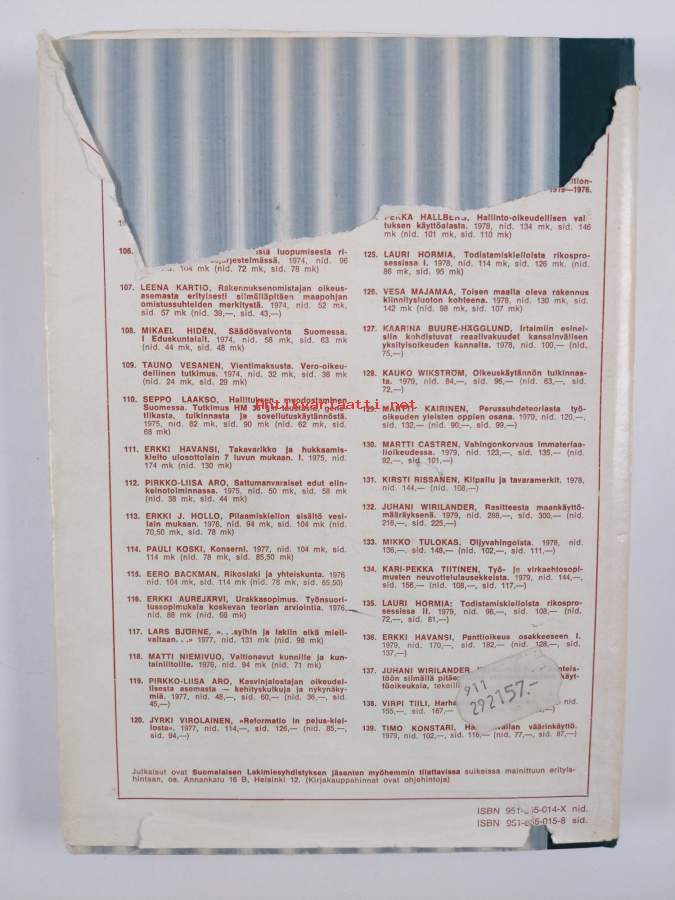 106.
siä luopumisesta ri-
järjestelmässä. 1974, nid. 96
104 mk (nid. 72 mk, sid. 78 mk)
107. LEENA KARTIO, Rakennuksenomistajan oikeus-
asemasta erityisesti silmälläpitäen maapohjan
omistussuhteiden merkitystä. 1974, nid. 52 mk,
sid. 57 mk (nid. 39,—, sid. 43,—)
108. MIKAEL HIDEN, Säädösvalvonta Suomessa.
I Eduskuntalait. 1974, nid. 58 mk, sid. 63 mk
(nid. 44 mk, sid. 48 mk)
109. TAUNO VESANEN, Vientimaksusta. Vero-oikeu-
dellinen tutkimus. 1974, nid. 32 mk, sid. 38 mk
(nid. 24 mk, sid. 29 mk)
110. SEPPO LAAKSO, Hallituksen muodostaminen
Suomessa. Tutkimus HM 36 §:n taustasta, gene-
tiikasta, tulkinnasta ja sovellutuskäytännöstä.
1975, nid. 82 mk, sid. 90 mk (nid. 62 mk, sid.
68 mk)
111. ERKKI HAVANSI, Takavarikko ja hukkaamis-
kielto ulosottolain 7 luvun mukaan. I. 1975, nid.
174 mk (nid. 130 mk)
112. PIRKKO-LIISA ARO, Sattumanvaraiset edut elin-
keinotoiminnassa. 1975, nid. 50 mk, sid. 58 mk
(nid. 38 mk, sid. 44 mk)
113. ERKKI J. HOLLO, Pilaamiskiellon sisältö vesi-
lain mukaan. 1976, nid. 94 mk, sid. 104 mk (nid.
70,50 mk, sid. 78 mk)
114. PAULI KOSKI, Konserni. 1977, nid. 104 mk, sid.
114 mk (nid. 78 mk, sid. 85,50 mk)
115. EERO BACKMAN, Rikoslaki ja yhteiskunta. 1976
nid. 104 mk, sid. 114 mk (nid. 78 mk, sid. 85,50)
116. ERKKI AUREJÄRVI, Urakkasopimus. Työnsuori-
tussopimuksia koskevan teorian arviointia. 1976,
nid. 88 mk (nid. 68 mk)
117. LARS BJÖRNE, ». . .syihin ja lakiin eikä mieli-
valtaan. . .» 1977, nid. 131 mk (nid. 98 mk)
118. MATTI NIEMIVUO, Valtionavut kunnille ja kun-
tainliitoille. 1976, nid. 94 mk (nid. 71 mk)
119. PIRKKO-LIISA ARO, Kasvinjalostajan oikeudel-
lisesta asemasta — kehityskulkuja ja nykynäky-
miä. 1977, nid. 48,—, sid. 60,— (nid. 36,—, sid.
45,—)
120. JYRKI VIROLAINEN, »Reformatio in pejus-kiel-
losta». 1977, nid. 114,—, sid. 126,— (nid. 85,—,
sid. 94,—)
ition-
1919—1978.
PEKKA HALLBERG, Hallinto-oikeudellisen val
tuksen käyttöalasta. 1978, nid. 134 mk, sid. 146
mk (nid. 101 mk, sid. 110 mk)
125. LAURI HORMIA, Todistamiskielloista rikospro-
sessissa I. 1978, nid. 114 mk, sid. 126 mk (nid.
86 mk, sid. 95 mk)
126. VESA MAJAMAA, Toisen maalla oleva rakennus
kiinnitysluoton kohteena. 1978, nid. 130 mk, sid.
142 mk (nid. 98 mk, sid. 107 mk)
127. KAARINA BUURE-HÄGGLUND, Irtaimiin esinei-
siin kohdistuvat reaalivakuudet kansainvälisen
yksityisoikeuden kannalta. 1978, nid. 100,— (nid.
75,—)
128. KAUKO WIKSTRÖM, Oikeuskäytännön tulkinnas-
ta. 1979, nid. 84,—, sid. 96,— (nid. 63,—, sid.
72,—)
129. MARTTI KAIRINEN, Perussuhdeteoriasta työ-
oikeuden yleisten oppien osana. 1979, nid. 120,—,
sid. 132,— (nid. 90,—, sid. 99,—)
130. MARTTI CASTRÉN, Vahingonkorvaus immateriaa-
lioikeudessa. 1979, nid. 123,—, sid. 135,— (nid.
92,—, sid. 101,—)
131. KIRSTI RISSANEN, Kilpailu ja tavaramerkit. 1978,
nid. 144,— (nid. 108,—)
132. JUHANI WIRILANDER, Rasitteesta maankäyttö-
määräyksenä. 1979, nid. 288,—, sid. 300,— (nid.
216,—, sid. 225,—)
133. MIKKO TULOKAS, Öljyvahingoista. 1978, nid.
136,—, sid. 148,— (nid. 102,—, sid. 111,—)
134. KARI-PEKKA TIITINEN, Työ- ja virkaehtosopi-
musten neuvottelulausekkeista. 1979, nid. 144,—,
sid. 156,— (nid. 108,—, sid. 117,—)
135. LAURI HORMIA: Todistamiskielloista rikospro-
sessissa II. 1979, nid. 96,—, sid. 108,— (nid.
72,—, sid. 81,—)
136. ERKKI HAVANSI, Panttioikeus osakkeeseen I.
1979, nid. 170,—, sid. 182,— (nid. 128,—, sid.
137,—)
137. JUHANI WIRILANDER,
töön silmällä pitäen käyt-
töoikeuksia,
138. VIRPI TIILI,
155,—, sid. 167,—
139. TIMO KONSTARI, vallan väärinkäyttö.
1979, nid. 102,—, sid. 116,— (nid. 77,—, sid. 87,—)
911
292157.-
Antikvariaatti.net
Julkaisut ovat Suomalaisen Lakimiesyhdistyksen jäsenten myöhemmin tilattavissa sulkeissa mainittuun erityis-
hintaan, os. Annankatu 16 B, Helsinki 12. (Kirjakauppahinnat ovat ohjehintoja)
ISBN 951- -014-X nid.
ISBN 951- -015-8 sid.